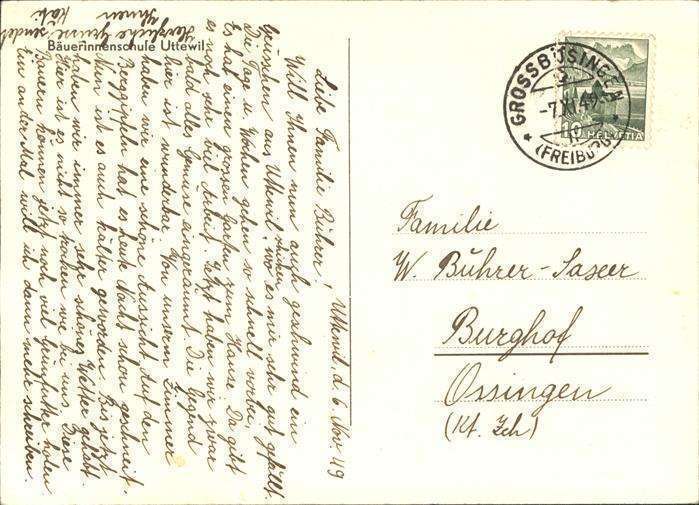 Bäuerinnenschule Uttewil
Uttewil, d. 6. Nov. 49
Liebe Familie Bührer!
Will Ihnen nun auch geschwind ein
Grüsschen aus Uttewil, wo es mir sehr gut gefällt.
Die Tage u. Wochen gehen so schnell vorbei.
Es hat einen grossen Garten zum Hause. Da gibt
es noch sehr viel Arbeit. Jetzt haben wir zwar
bald alles Gemüse eingeräumt. Die Gegend
hier ist wunderbar. Von unserem Zimmer
haben wir eine schöne Aussicht. Auf den
Berggipfeln hat es heute Nacht schon geschneit.
Nun ist es auch kälter geworden. Bis jetzt
haben wir immer sehr schönes Wetter gehabt.
Hier ist es nicht so trocken wie bei uns. Diese
Bauern können jetzt noch viel Grünfutter holen.
Ein ander Mal will ich dann mehr schreiben.
Herzliche Grüsse sendet
Ihnen
Käti
GROSSBÖSINGEN
-7.XI.49
(FREIBURG)
HELVETIA
Familie
W. Bührer-Saxer
Burghof
Ossingen
(Kt. Zch)